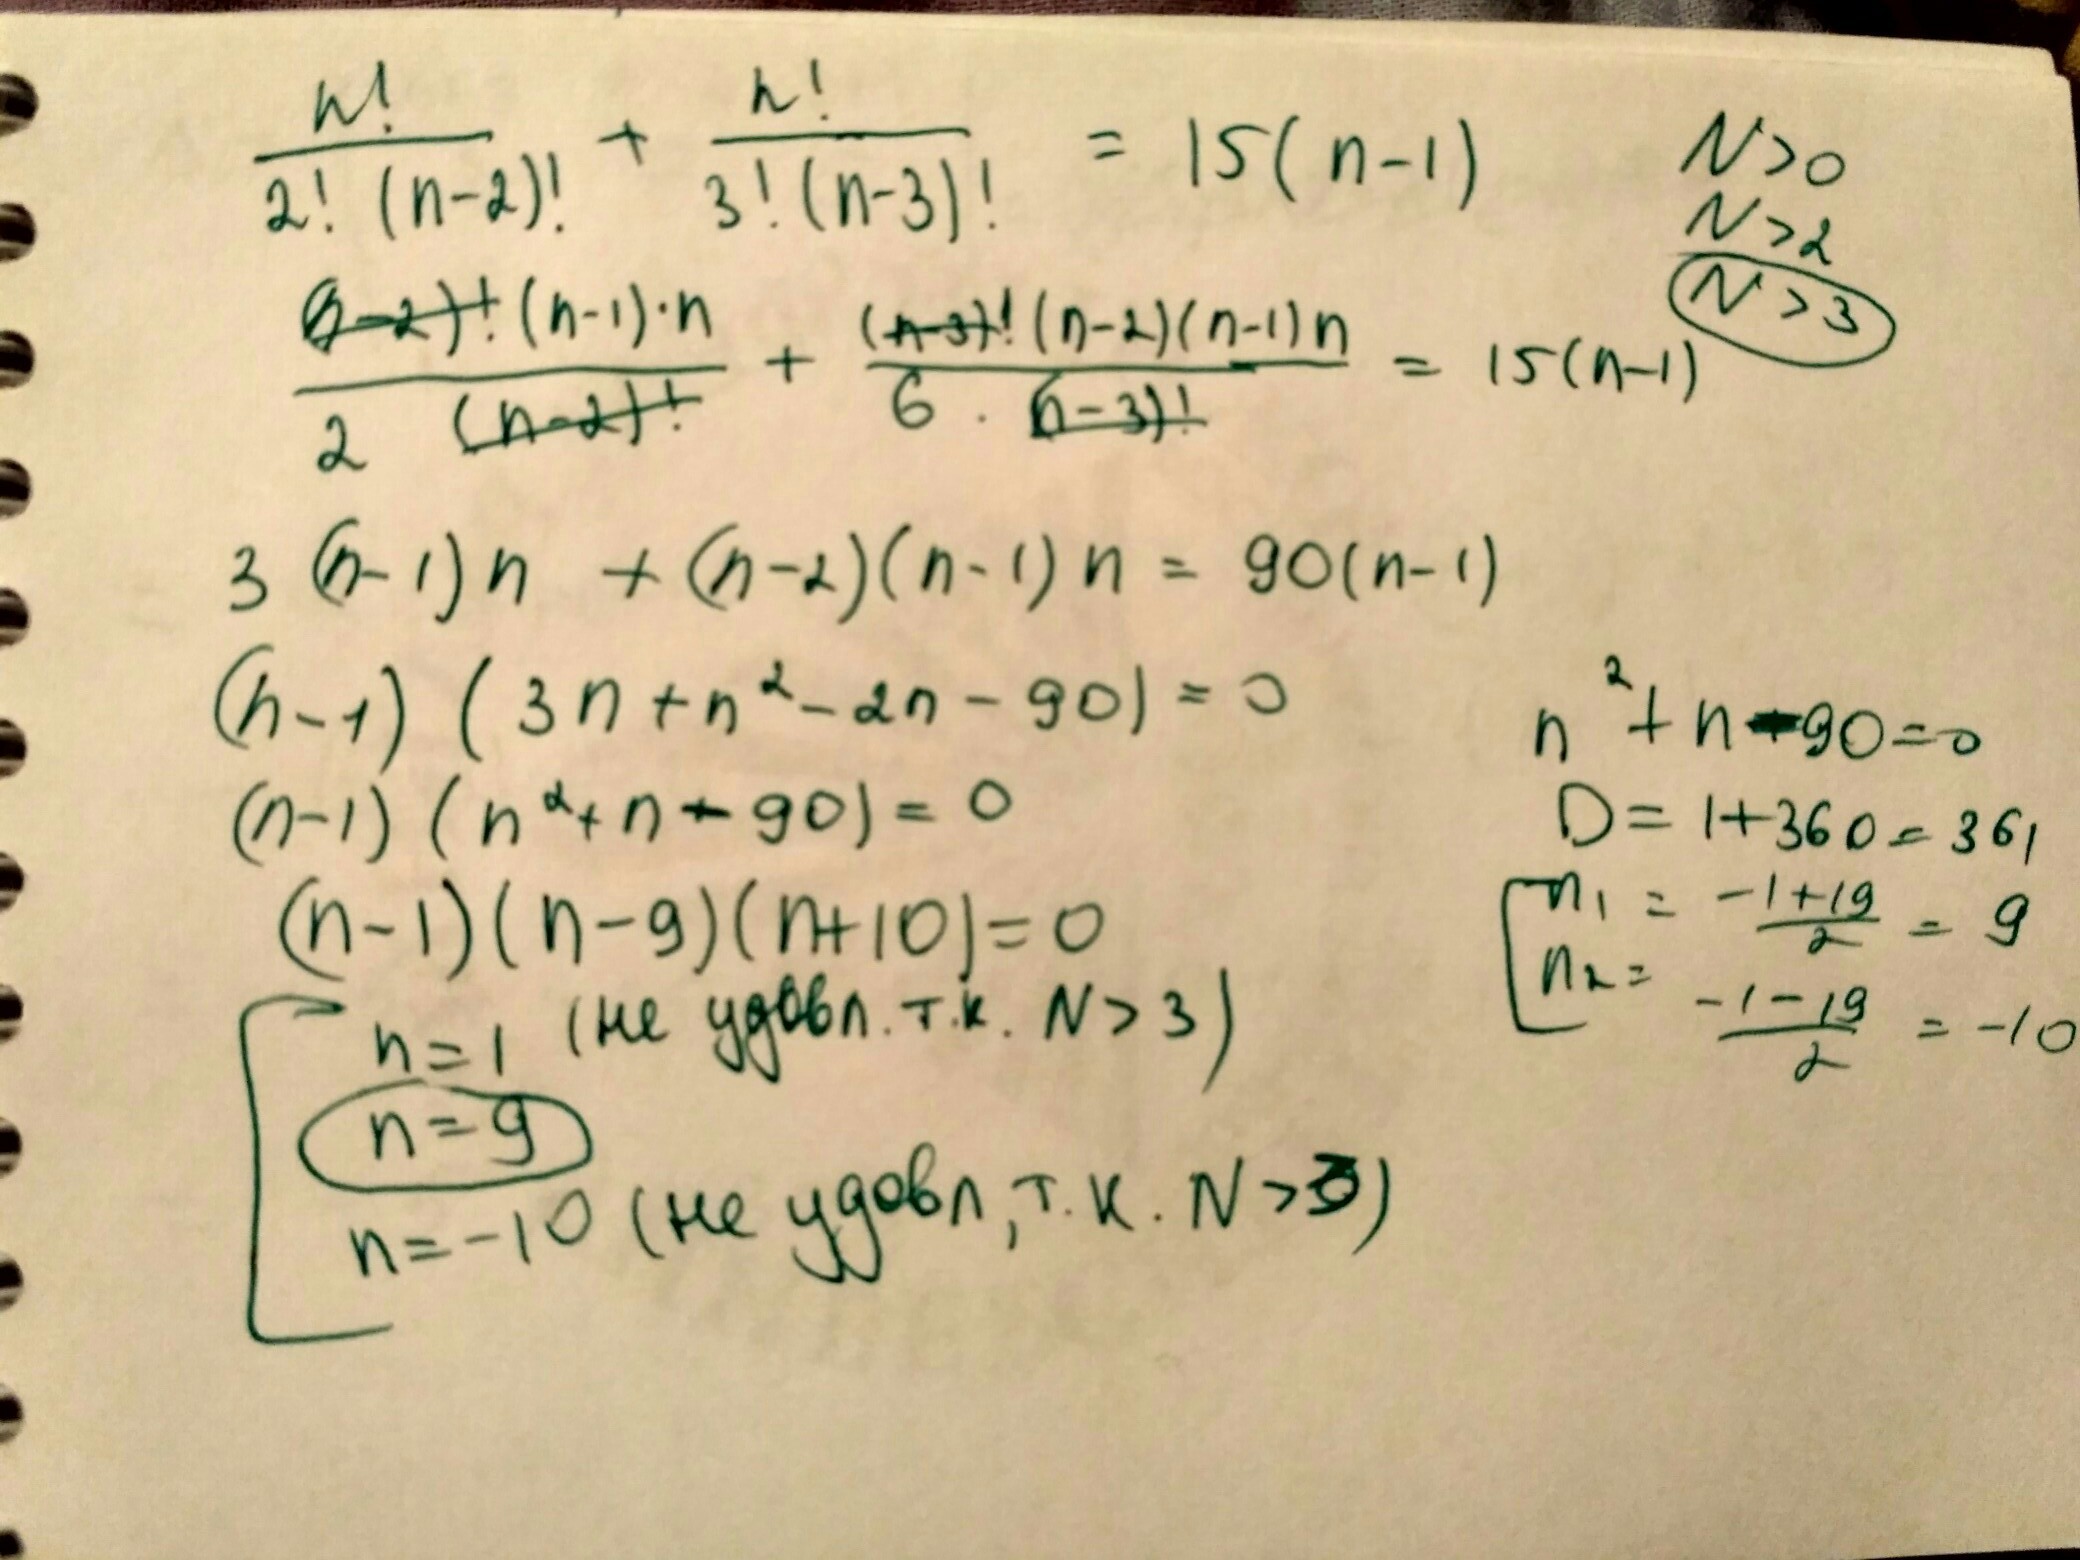 n! / 2! (n-2)! + n! / 3! (n-3)! = 15(n-1)
N>0
N>2
N>3
(n-2)! (n-1)·n / 2 (n-2)! + (n-3)! (n-2)(n-1)n / 6 · (n-3)! = 15(n-1)
3 (n-1)n + (n-2)(n-1)n = 90(n-1)
(n-1) (3n+n²-2n-90) = 0
(n-1) (n²+n-90) = 0
(n-1)(n-9)(n+10)=0
n=1 (не удовл. т.к. N>3)
n=9
n=-10 (не удовл, т.к. N>3)
n²+n-90=0
D= 1+360=361
n1 = -1+19 / 2 = 9
n2= -1-19 / 2 = -10